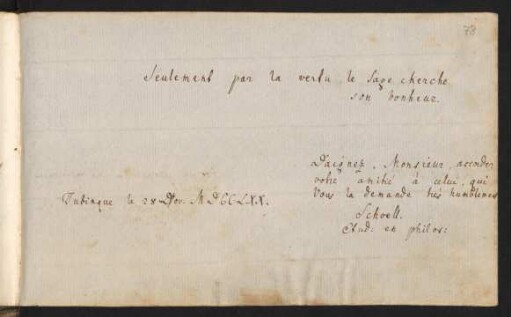 78
Seulement par la vertu le Sage cherche
son bonheur.
Daignez, Monsieur, accorder
votre amitié à celui, qui
Vous la demande très humblement
Tubingue le 28 MDCCLXX.
Schoell.
Etud. en philos: